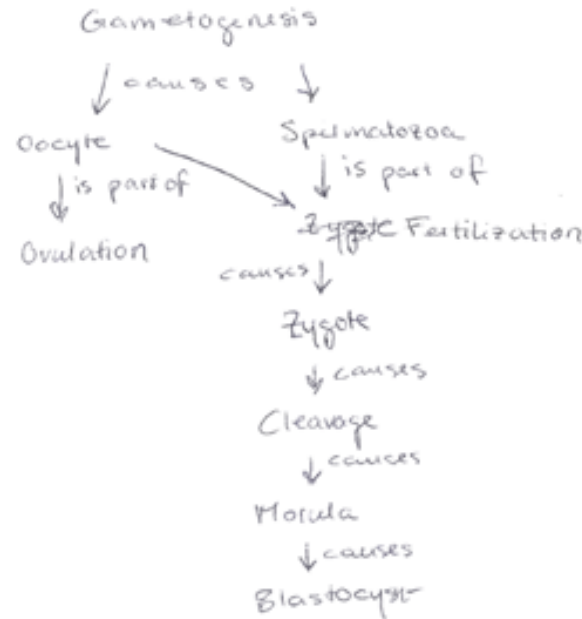 Gametogenesis
causes
Oocyte Spermatozoa
is part of is part of
Zygote Fertilization
Ovulation
causes
Zygote
causes
Cleavage
causes
Morula
causes
Blastocyst